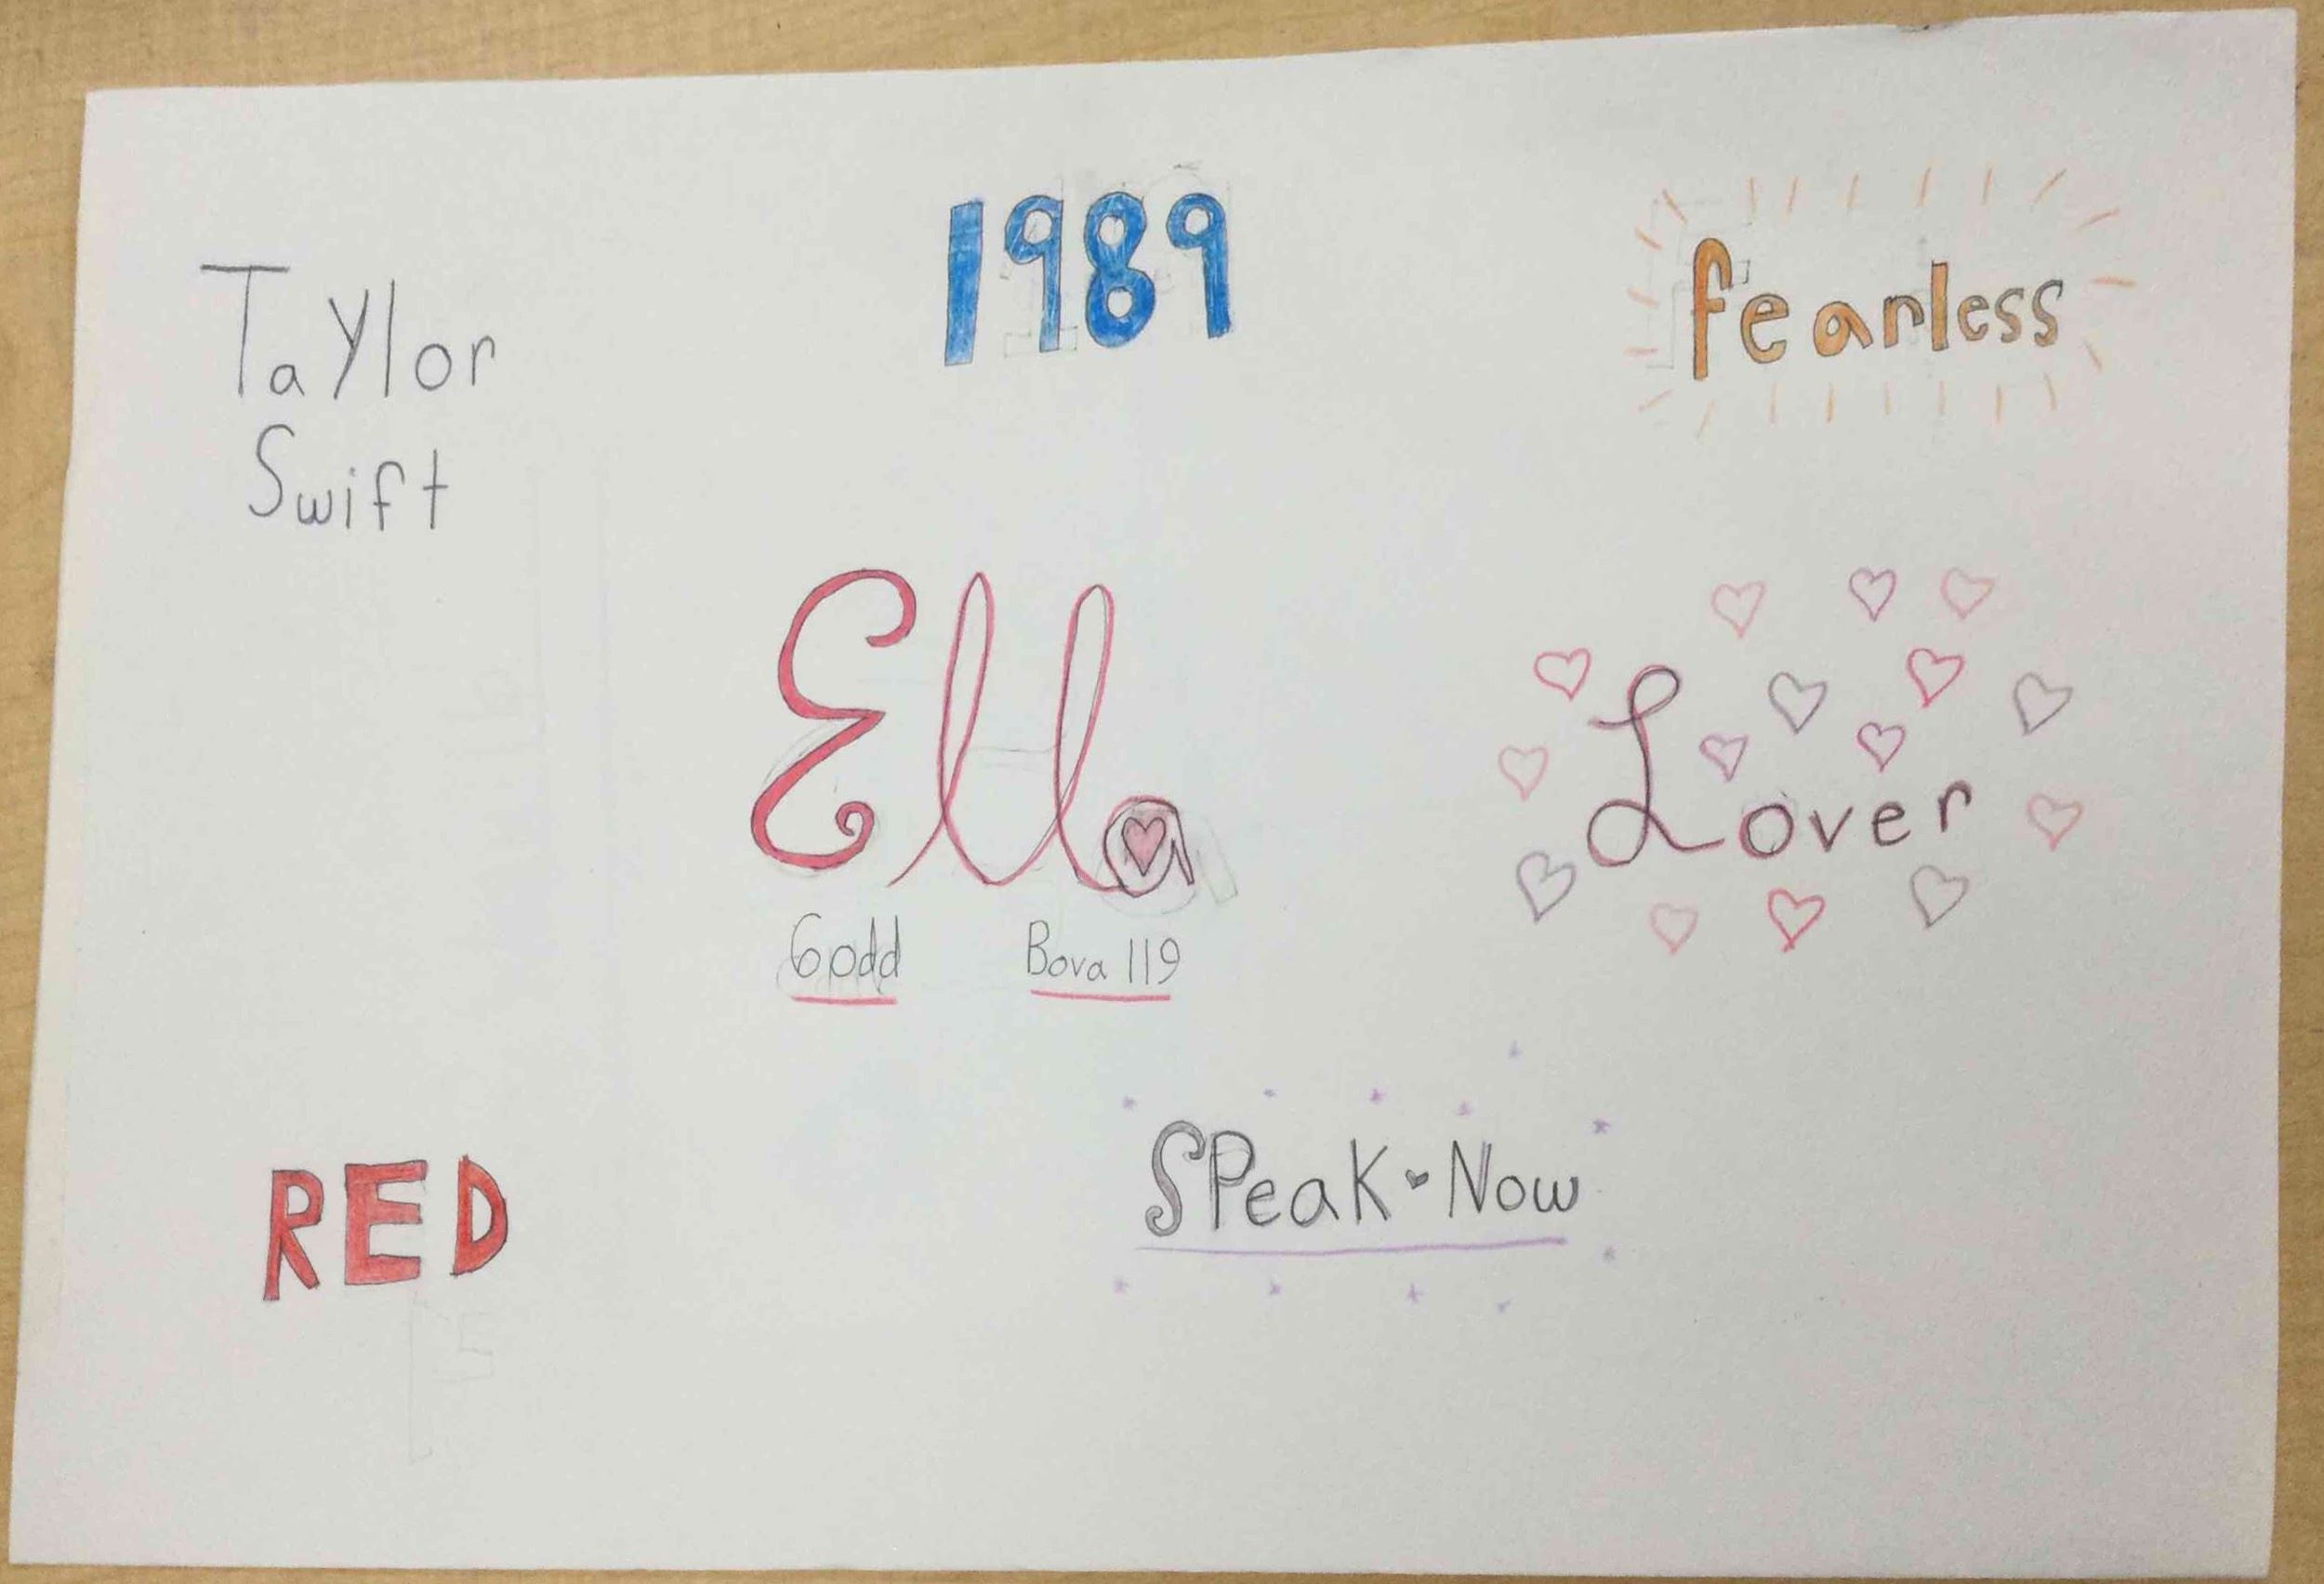 Taylor
Swift
1989
fearless
Ella
6odd
Bova 119
Lover
RED
SPeaK Now